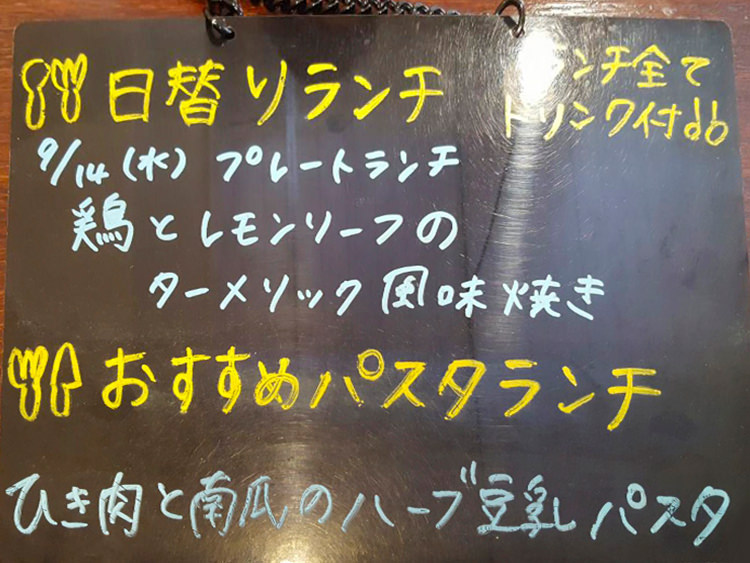 日替りランチ
ランチ全て
ドリンク付
9/14(水) プレートランチ
鶏とレモンリーフの
ターメリック風味焼き
おすすめパスタランチ
ひき肉と南瓜のハーブ豆乳パスタ